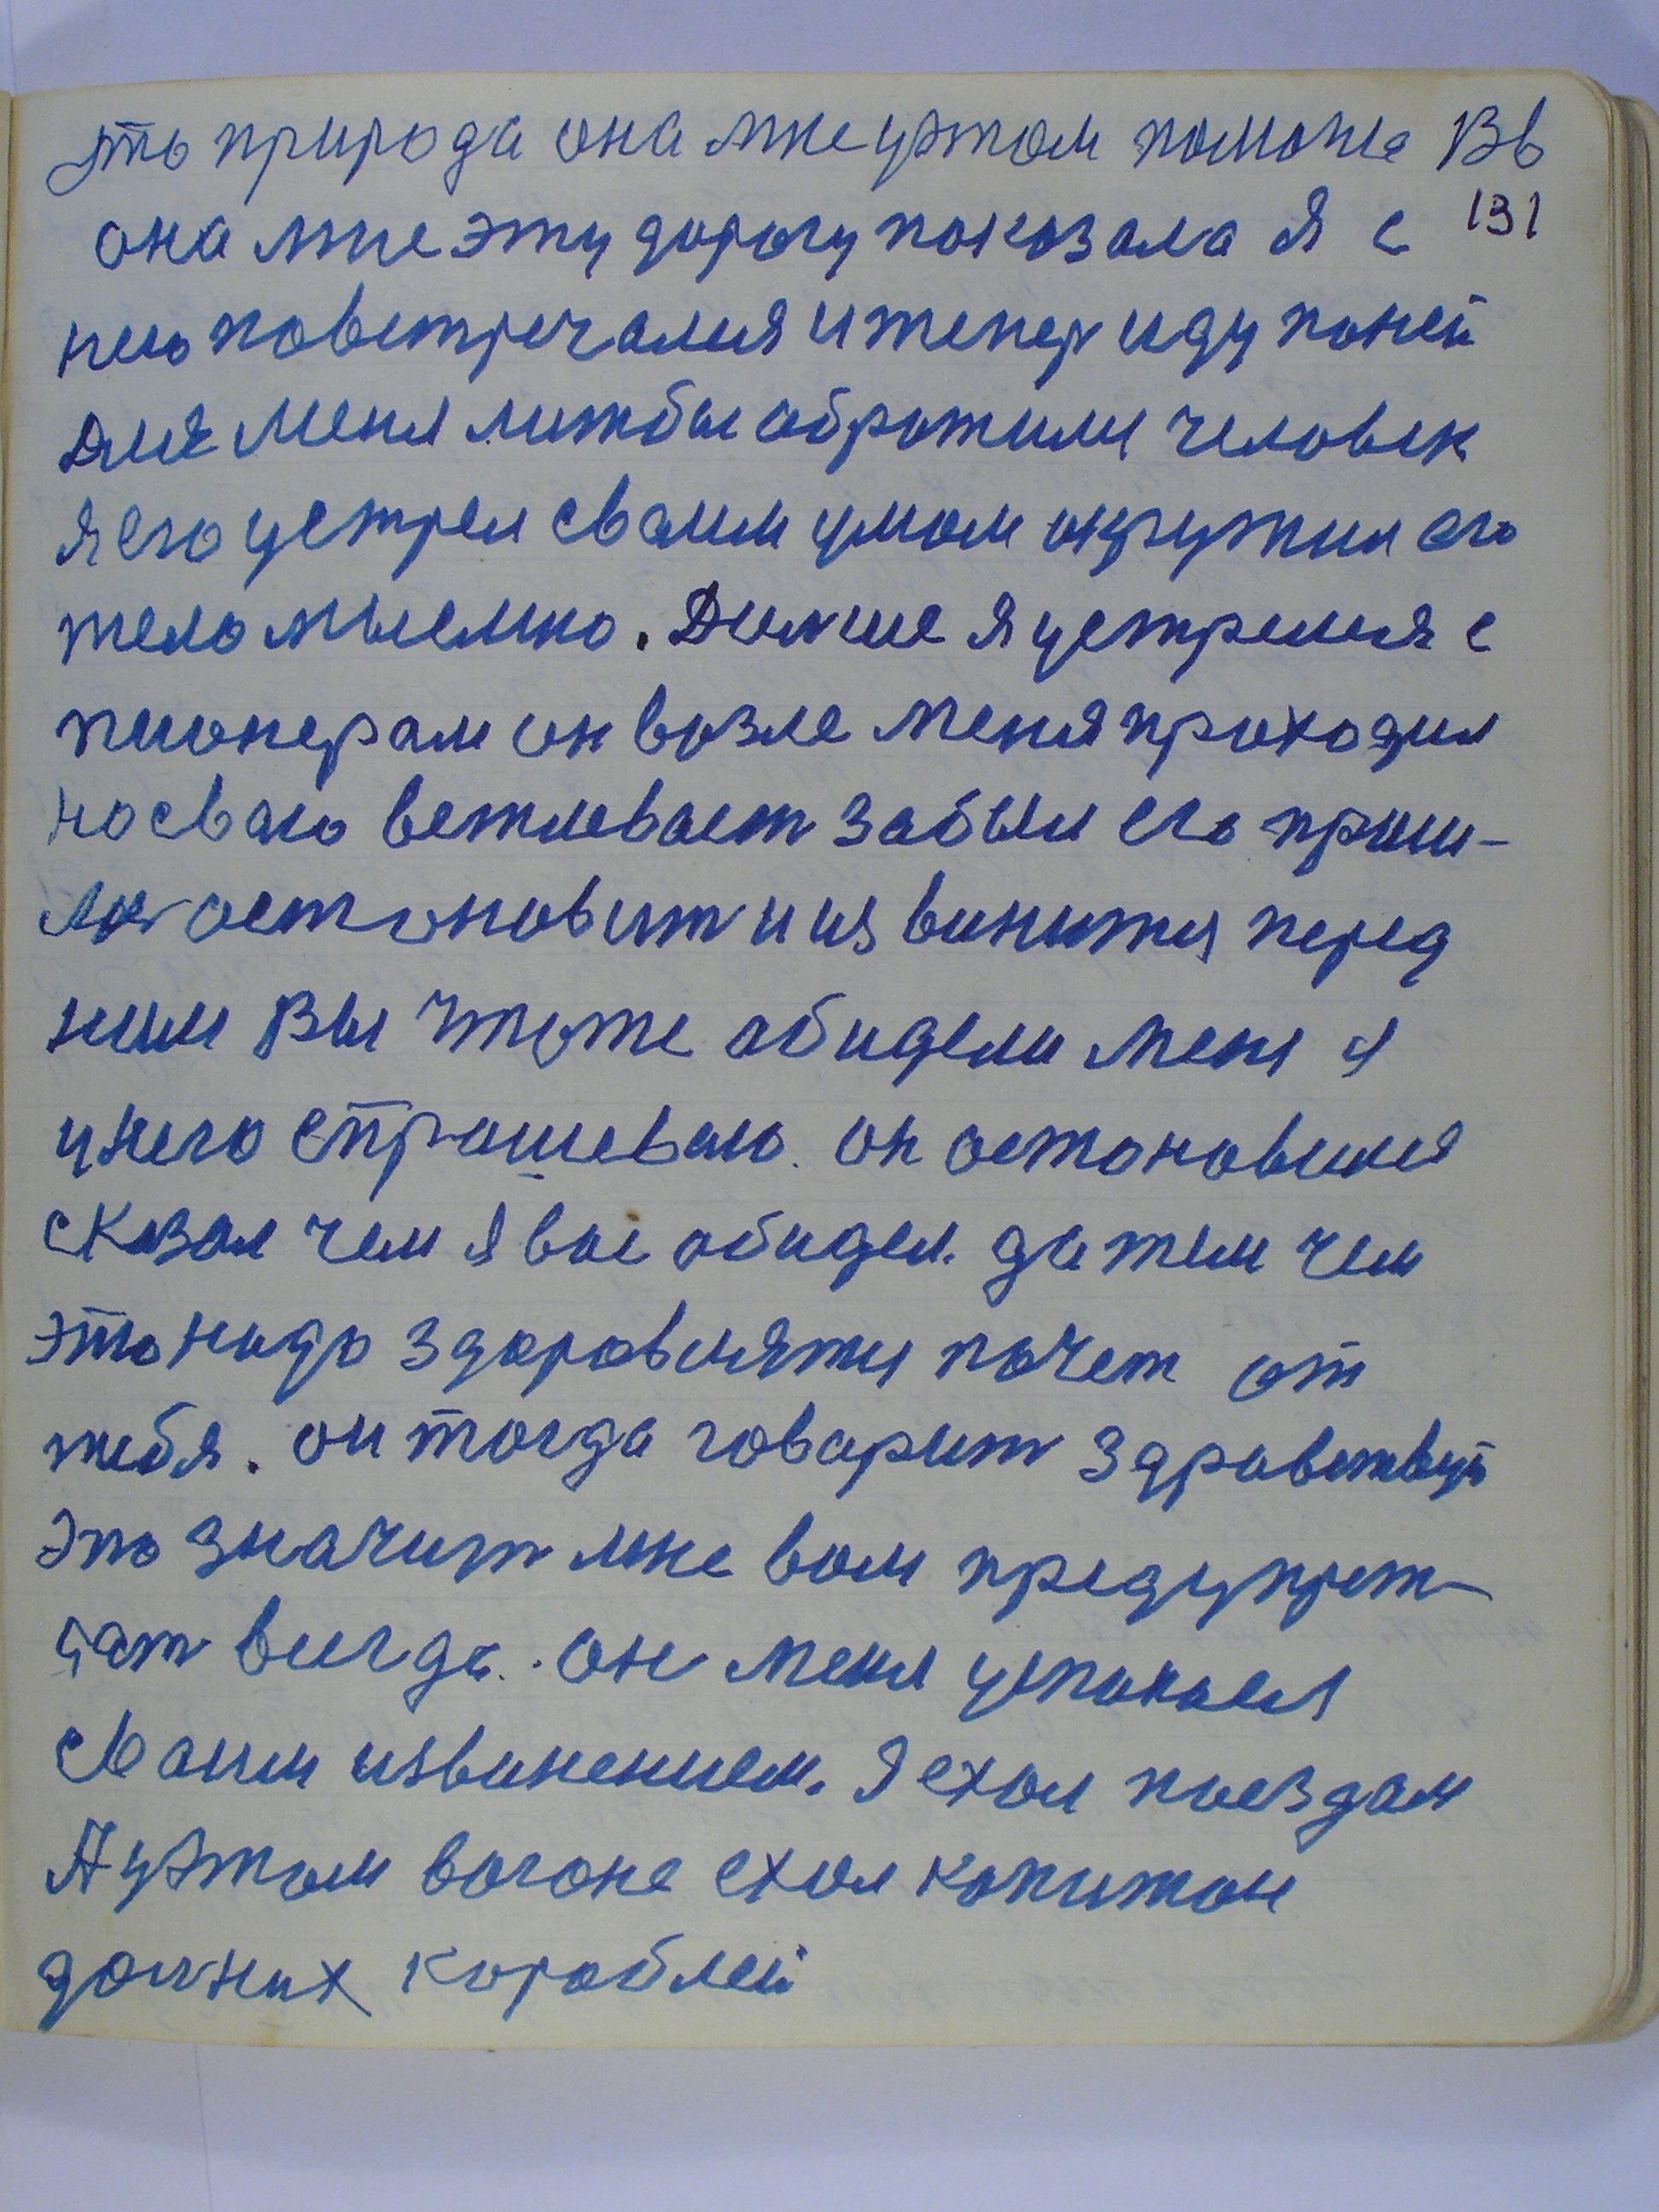 это природа она мне уэтом поможе Вв
она мне эту дорогу показала Я с 131
нею повстречался и тепер иду поней
для меня лижбы обротился человек
я его устрел сваим умом окружил его
тело мыслно. Дальше я устрелся с
пионерам он возле меня проходил
но сваю вежлеваст забыл его приш-
лос остоновит и извинится перед
ним Вы чтоже обидели меня я
унего спрашеваю. он остоновился
сказал чем я вас обидел. да тем чем
это надо здоровлятся почет от
тебя. он тогда говарит здравствуй
это значит мне вам предупреж-
дат всигда. он меня успокоел
сваим извинением. Я ехал поездам
А уэтом вогоне ехал капитан
далних кораблей